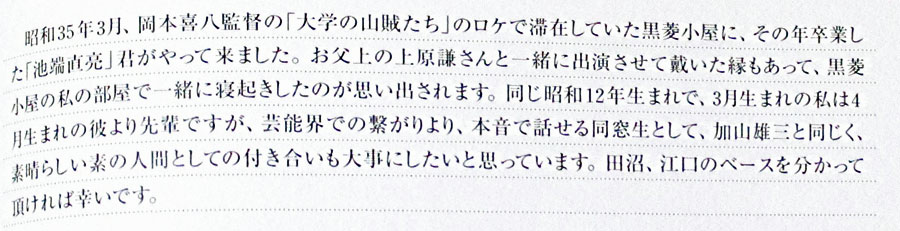 昭和35年3月、岡本喜八監督の「大学の山賊たち」のロケで滞在していた黒菱小屋に、その年卒業し
た「池端直亮」君がやって来ました。お父上の上原謙さんと一緒に出演させて戴いた縁もあって、黒菱
小屋の私の部屋で一緒に寝起きしたのが思い出されます。同じ昭和12年生まれで、3月生まれの私は4
月生まれの彼より先輩ですが、芸能界での繋がりより、本音で話せる同窓生として、加山雄三と同じく、
素晴らしい素の人間としての付き合いも大事にしたいと思っています。田沼、江口のベースを分かって
頂ければ幸いです。